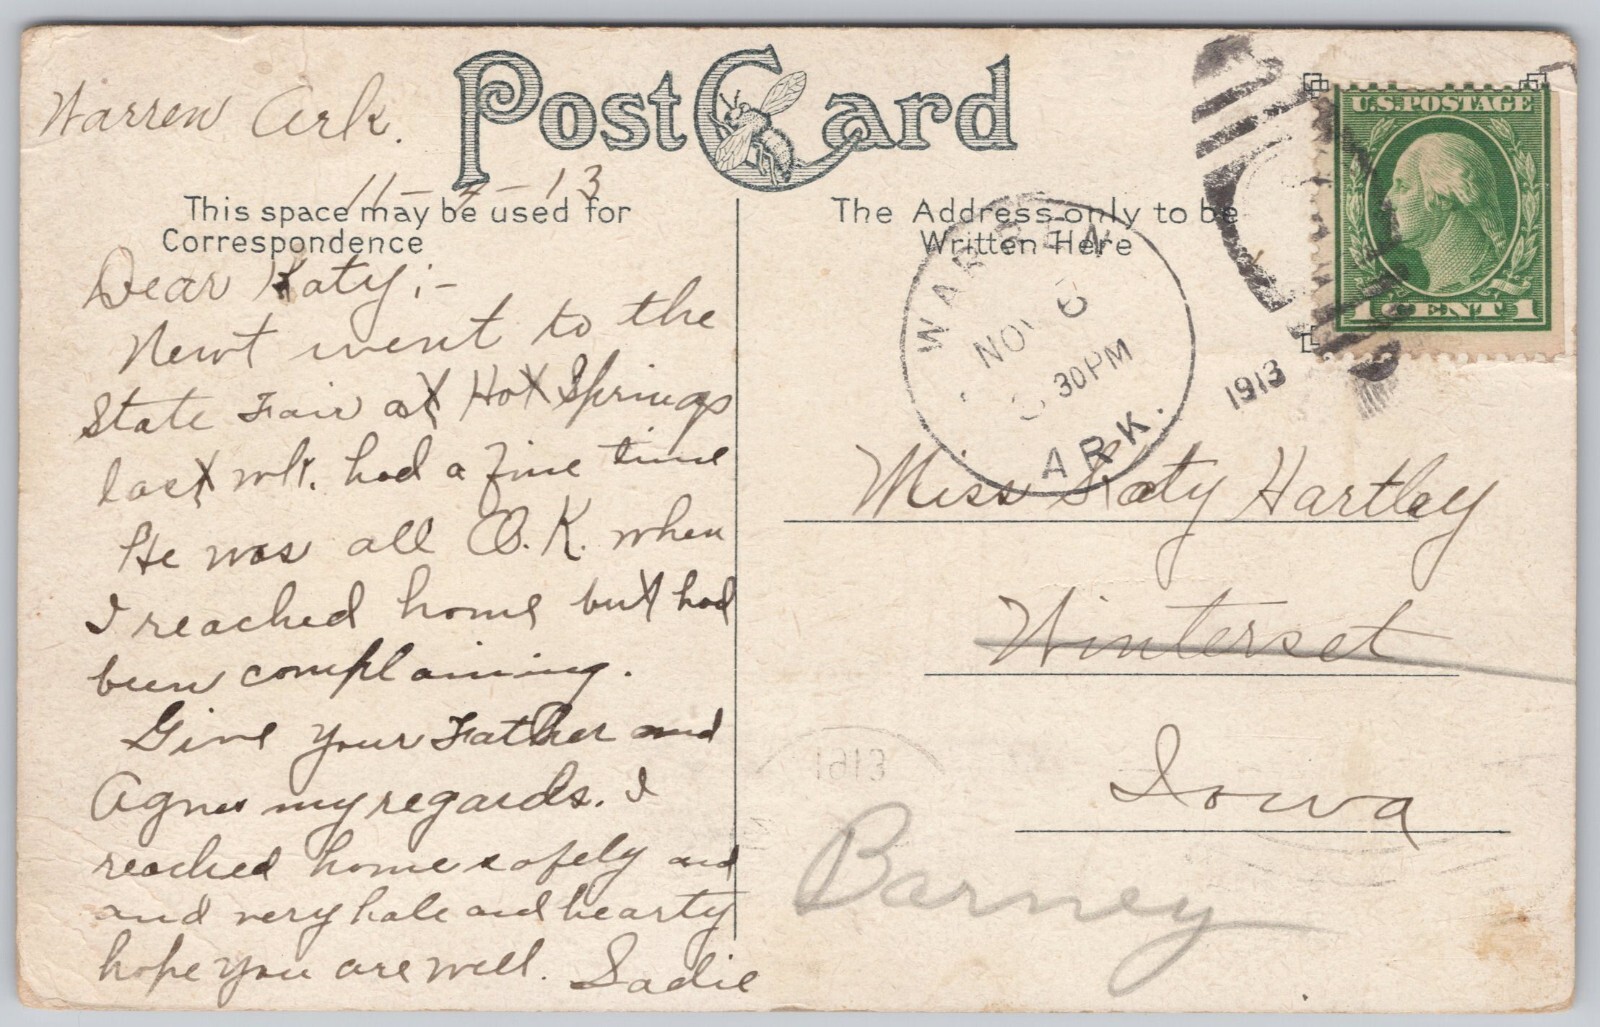 Warren Ark.
Post Card
11-4-13
This space may be used for
Correspondence
Dear Katy;-
Newt went to the
State Fair at Hot Springs
last wk. had a fine time
He was all O.K. when
I reached home but had
been complaining.
Give your Father and
Agnes my regards. I
reached home safely and
and very hale and hearty
hope you are well. Sadie
The Address only to be
Written Here
WARREN
NOV
30 PM
1913
ARK.
U.S. POSTAGE
1 CENT 1
Miss Katy Hartley
Winterset
Iowa
1913
Barney